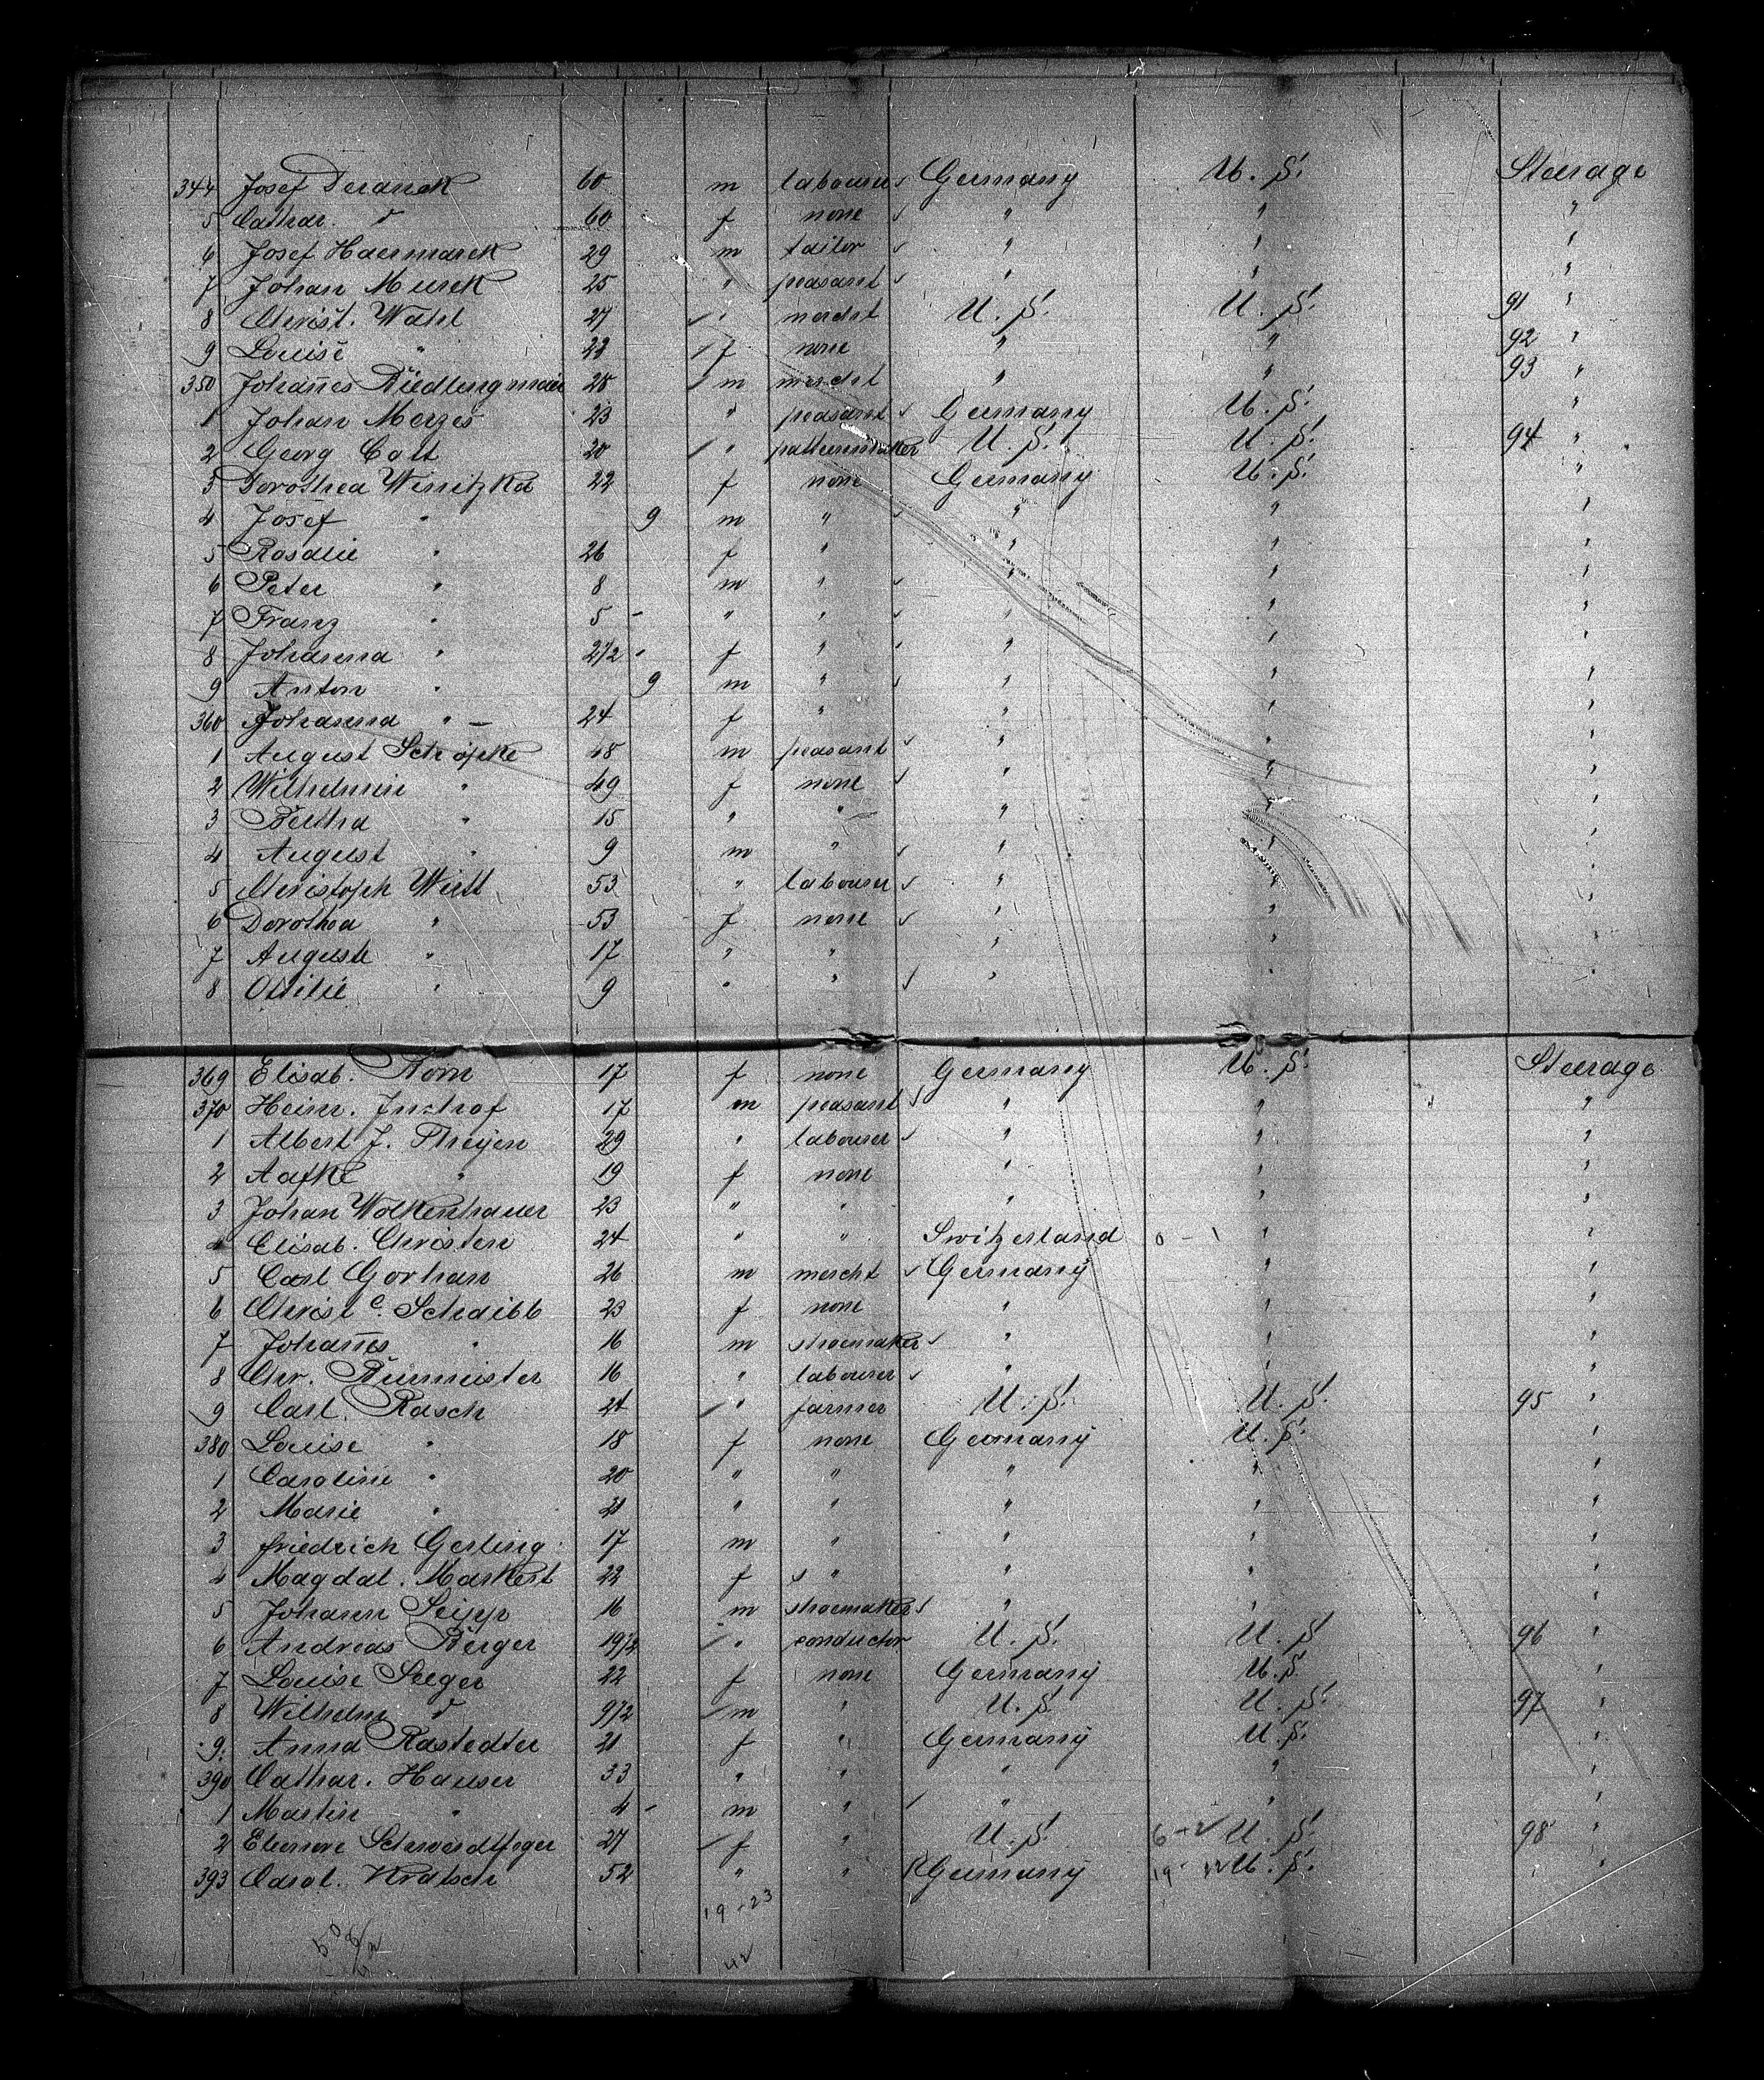 344 Josef Deranek 60 m labourer ✓ Germany U. S. Steerage
5 Cathar. d 60 f none ✓ " " "
6 Josef Haermarek 29 m tailor ✓ " " "
7 Johan Murek 25 " peasant ✓ " " "
8 Christ. Wahl 27 " mercht U. S. U. S. 91 "
9 Louise " f none " " 92 "
350 Johañes m mercht " " 93 "
1 Johan Merges 23 " peasant ✓ Germany U. S. "
2 Georg Catt 20 " patternmaker U. S. U. S. 94 "
3 Dorothea Winitzka 22 f none Germany U. S. "
4 Josef " 9 m " ✓ " " "
5 Rosalie " 26 f " " " "
6 Peter " 8 m " ✓ " " "
7 Franz " 5 - " " ✓ " " "
8 Johanna " 2 1/2 f " ✓ " " "
9 Anton " 9 m " ✓ " " "
360 Johanna " - 24 f " " " "
1 August Schöpke 48 m peasant ✓ " " "
2 Wilhelmin " 49 f none ✓ " " "
3 Bertha " 15 " " " " "
4 August " 9 m " ✓ " " "
5 Christoph Witt 53 " labourer ✓ " " "
6 Dorothea " 53 f none ✓ " " "
7 Auguste " 17 " " " " "
8 Ottilie " 9 " " ✓ " " "
369 Elisab. Rom 17 f none Germany U. S. Steerage
370 Heinr. Justhof 17 m peasant ✓ " " "
1 Albert J. Theijen 29 " labourer ✓ " " "
2 Aafke " 19 f none " " "
3 Johan Wolkenhauer 23 " " " " "
4 Elisab. Christen 24 " " Switzerland 0 - 1 " "
5 Carl Gorhan 26 m mercht ✓ Germany " "
6 Christ e. Schaibb 23 f none " " "
7 Johañes " 16 m shoemaker ✓ " " "
8 Chr. Burmeister 16 " labourer ✓ " " "
9 Carl Rasch 24 " farmer U. S. U. S. 95 "
380 Louise " 18 f none Germany U. S. "
1 Caroline " 20 " " " " "
2 Marie " 21 " " " " "
3 Friedrich Gerling 17 m " " " "
4 Magdal. Markert 22 f " " " "
5 Johann Seipp 16 m shoemaker ✓ " " "
6 Andreas Berger 19 1/2 " conductor U. S. U. S 96 "
7 Louise Seeger 22 f none Germany U. S "
8 Wilhelm d 9 1/2 m " U. S. U. S. 97 "
9 Anna Rastedter 21 f " Germany U. S. "
390 Cathar. Hauser 33 " " " " "
1 Martin " 4 - m " ✓ " " "
2 Eleonore Schwerdtfeger 27 f " U. S. 6 - 2 U. S. 98 "
393 Carol. Kratsch 52 " " Germany 19 - 12 U. S. "
19 - 23
42